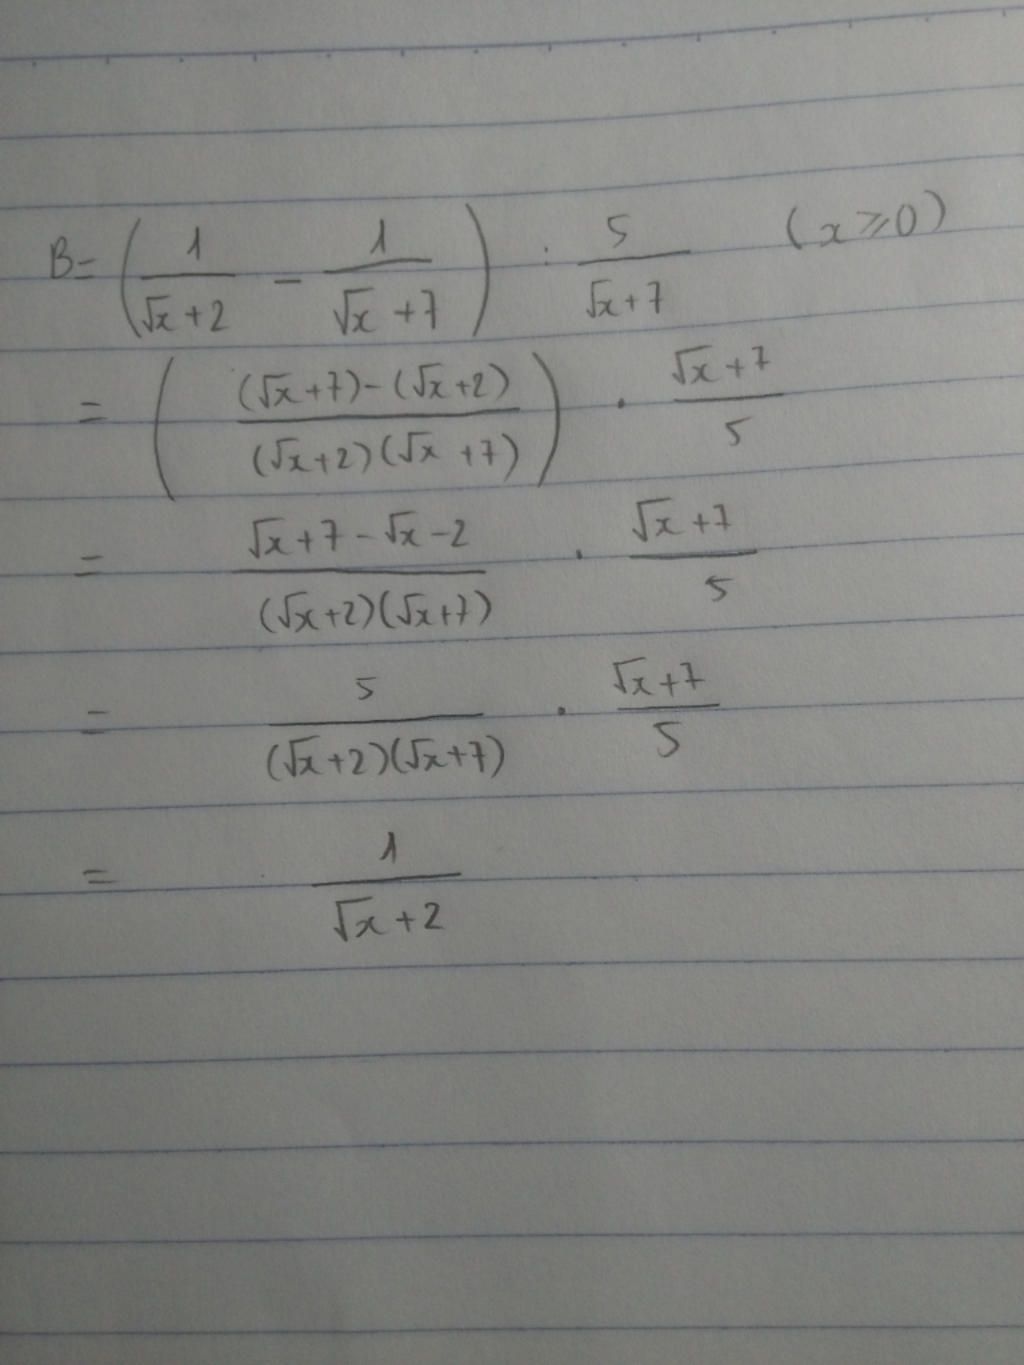 B = (1/(√x + 2) - 1/(√x + 7)) : 5/(√x + 7) (x ⩾ 0)
= (((√x + 7) - (√x + 2))/((√x + 2)(√x + 7))) . (√x + 7)/5
= (√x + 7 - √x - 2)/((√x + 2)(√x + 7)) . (√x + 7)/5
= 5/((√x + 2)(√x + 7)) . (√x + 7)/5
= 1/(√x + 2)